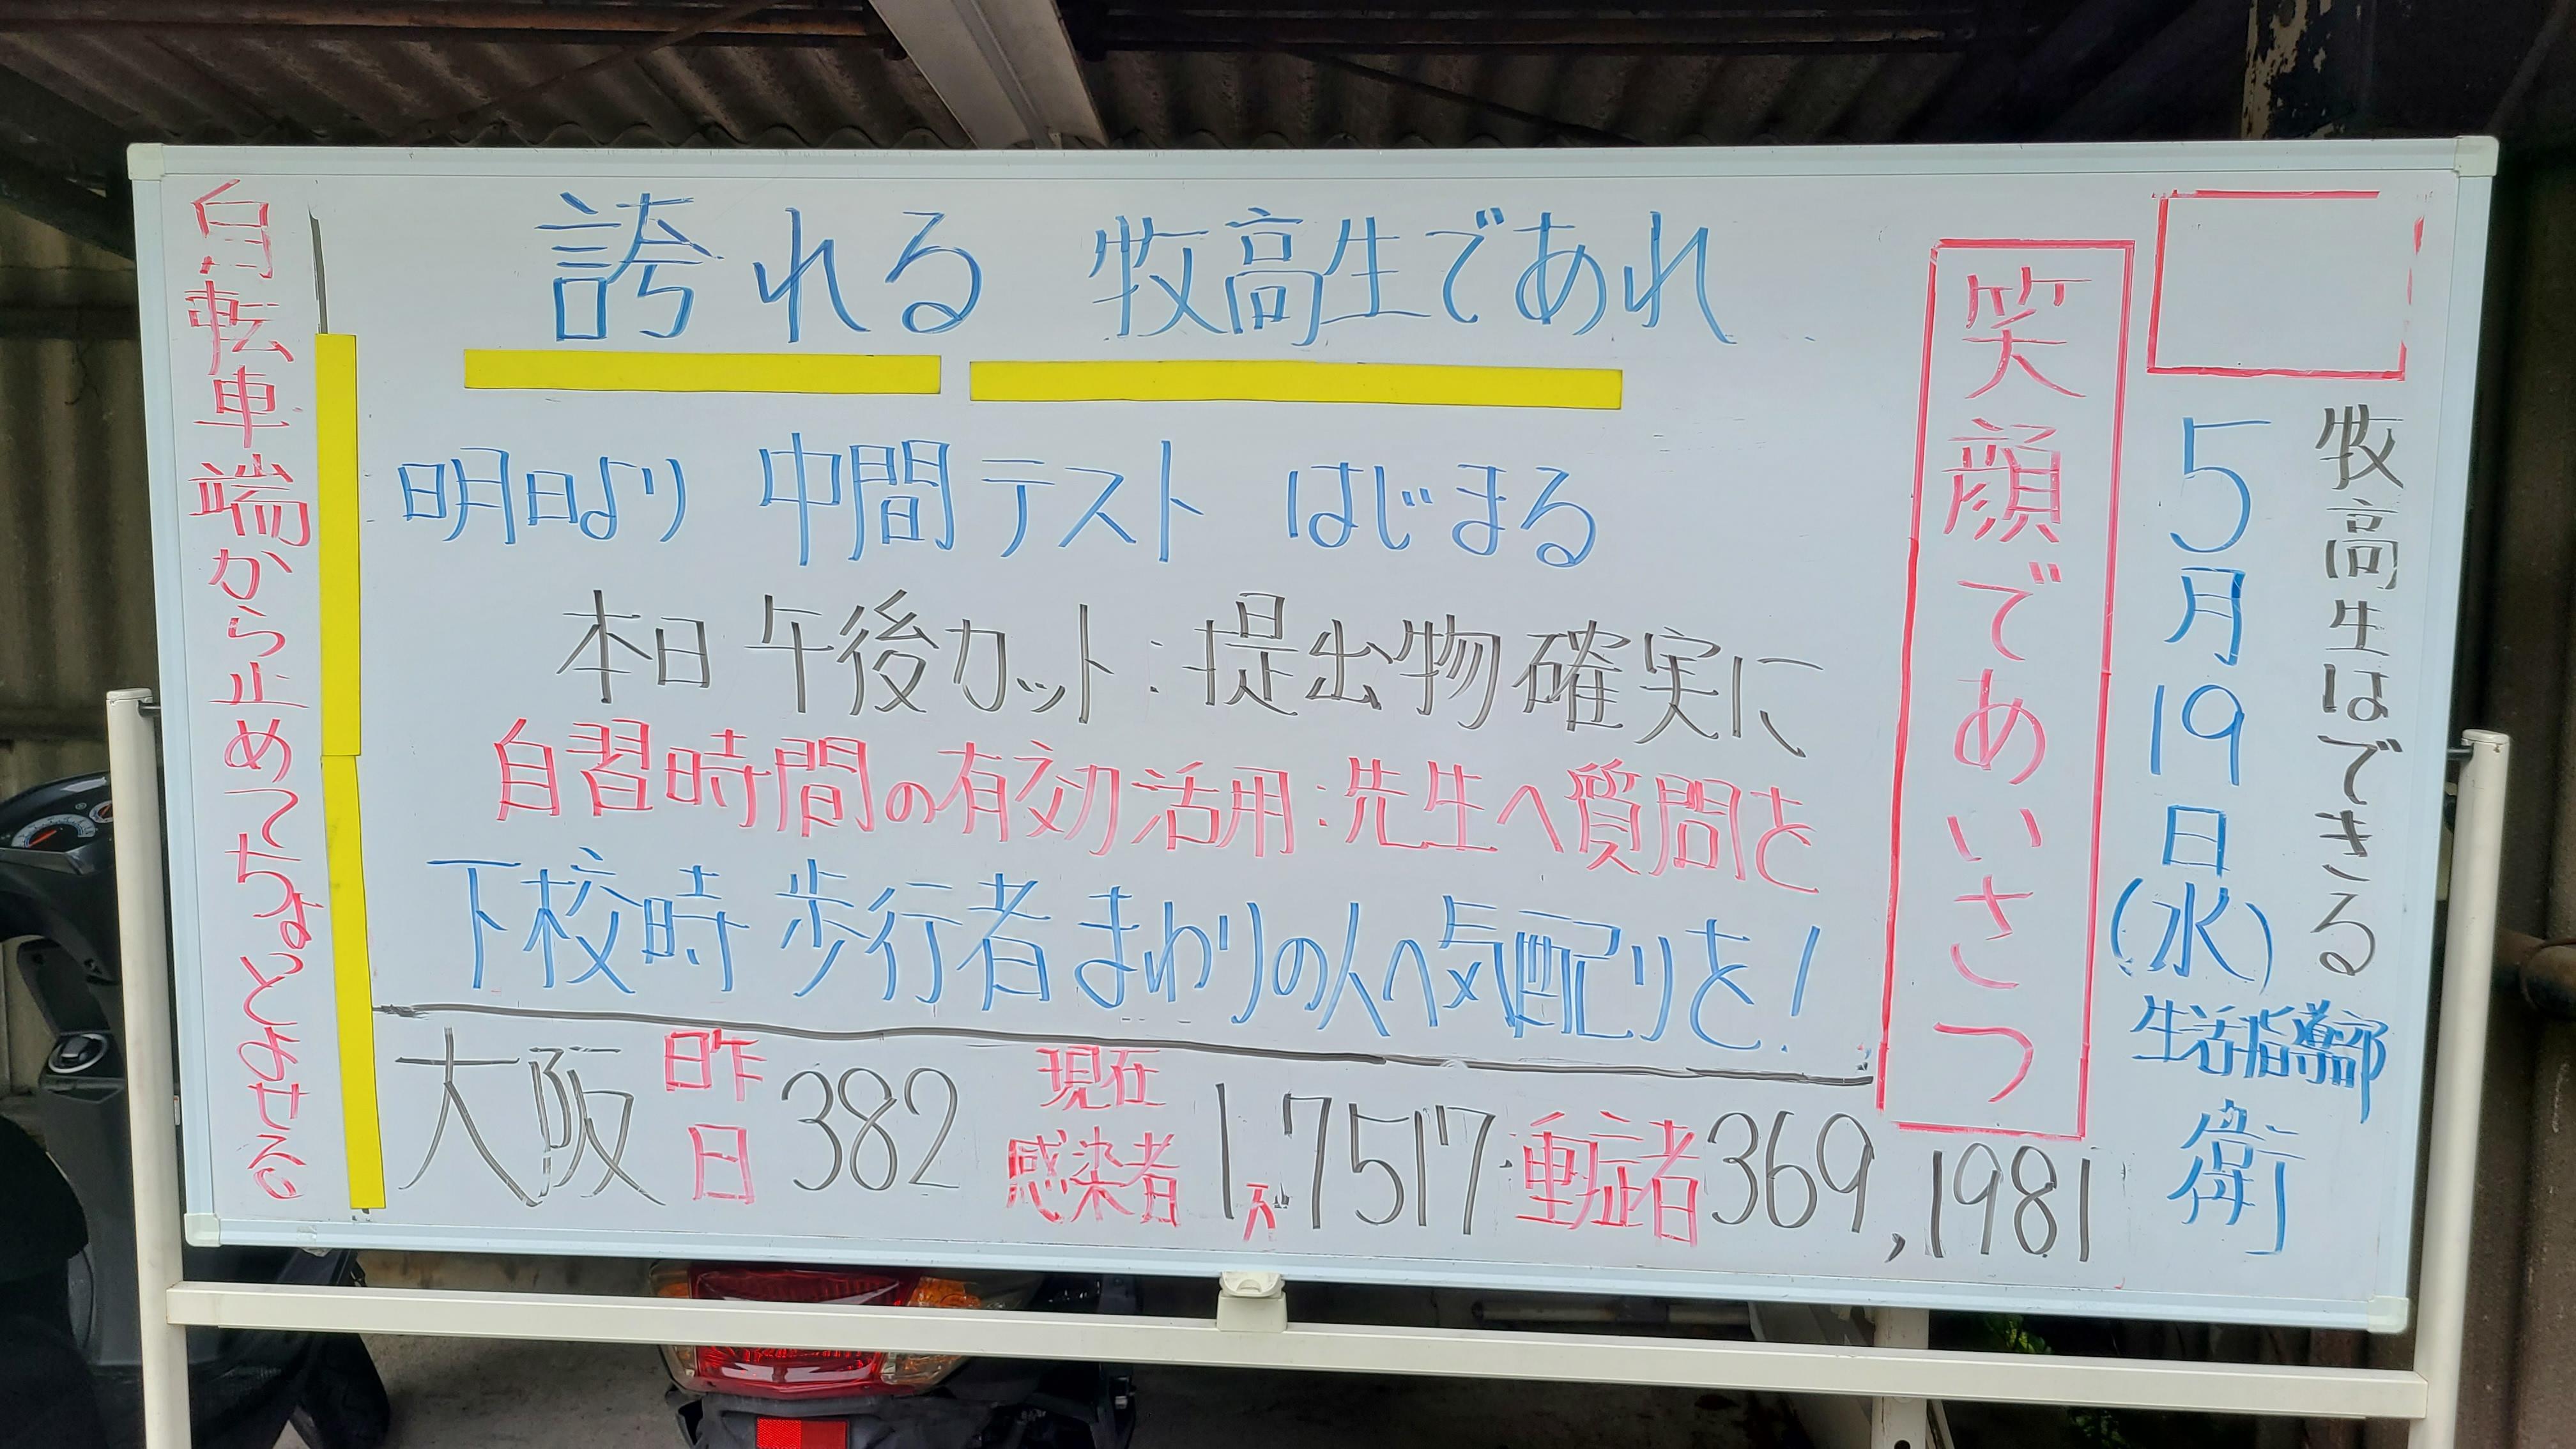 牧高生はできる
5月19日(水)生活指導部 衛
笑顔であいさつ
誇れる 牧高生であれ
明日より 中間テスト はじまる
本日 午後カット:提出物確実に
自習時間の有効活用:先生へ質問を
下校時 歩行者 まわりの人へ気配りを!
大阪 昨日 382 現在感染者 1万7517 重症者 369,1981
自転車端から止めてちょとよせる